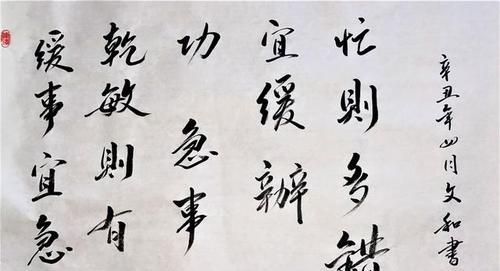 緩事宜急
乾敏則有
功 急事
宜緩辦
忙則多錯
辛丑年四月文和書